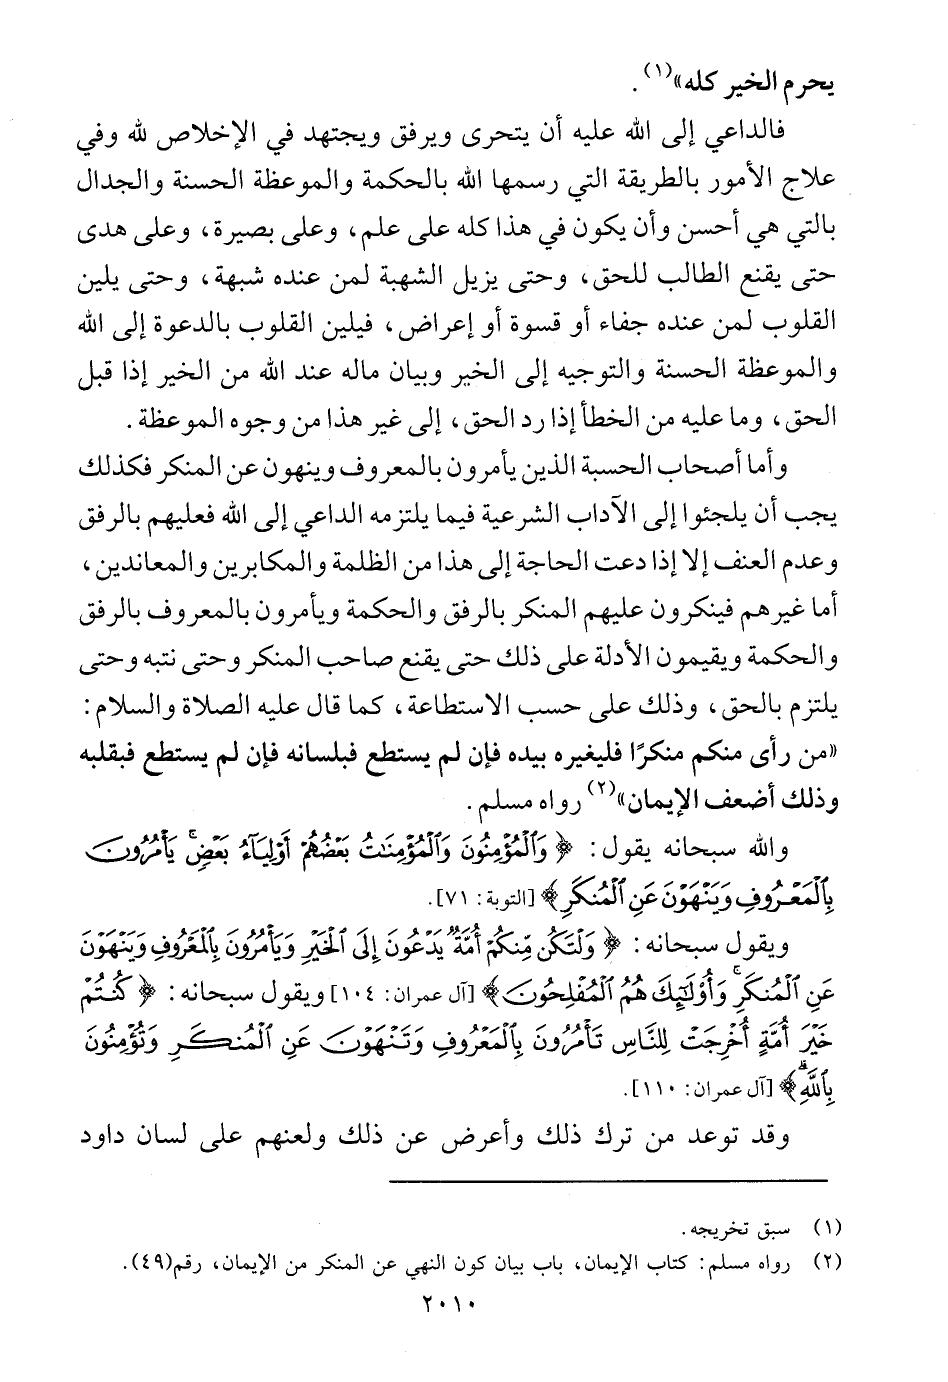 يحرم الخير كله»(١).
فالداعي إلى الله عليه أن يتحرى ويرفق ويجتهد في الإخلاص لله وفي
علاج الأمور بالطريقة التي رسمها الله بالحكمة والموعظة الحسنة والجدال
بالتي هي أحسن وأن يكون في هذا كله على علم، وعلى بصيرة، وعلى هدى
حتى يقنع الطالب للحق، وحتى يزيل الشهبة لمن عنده شبهة، وحتى يلين
القلوب لمن عنده جفاء أو قسوة أو إعراض، فيلين القلوب بالدعوة إلى الله
والموعظة الحسنة والتوجيه إلى الخير وبيان ماله عند الله من الخير إذا قبل
الحق، وما عليه من الخطأ إذا رد الحق، إلى غير هذا من وجوه الموعظة.
وأما أصحاب الحسبة الذين يأمرون بالمعروف وينهون عن المنكر فكذلك
يجب أن يلجئوا إلى الآداب الشرعية فيما يلتزمه الداعي إلى الله فعليهم بالرفق
وعدم العنف إلا إذا دعت الحاجة إلى هذا من الظلمة والمكابرين والمعاندين،
أما غيرهم فينكرون عليهم المنكر بالرفق والحكمة ويأمرون بالمعروف بالرفق
والحكمة ويقيمون الأدلة على ذلك حتى يقنع صاحب المنكر وحتى نتبه وحتى
يلتزم بالحق، وذلك على حسب الاستطاعة، كما قال عليه الصلاة والسلام:
«من رأى منكم منكرًا فليغيره بيده فإن لم يستطع فبلسانه فإن لم يستطع فبقلبه
وذلك أضعف الإيمان»(٢) رواه مسلم.
والله سبحانه يقول: ﴿ وَٱلْمُؤْمِنُونَ وَٱلْمُؤْمِنَٰتُ بَعْضُهُمْ أَوْلِيَآءُ بَعْضٍۚ يَأْمُرُونَ
بِٱلْمَعْرُوفِ وَيَنْهَوْنَ عَنِ ٱلْمُنكَرِ﴾ [التوبة: ٧١].
ويقول سبحانه: ﴿ وَلْتَكُن مِّنكُمْ أُمَّةٌ يَدْعُونَ إِلَى ٱلْخَيْرِ وَيَأْمُرُونَ بِٱلْمَعْرُوفِ وَيَنْهَوْنَ
عَنِ ٱلْمُنكَرِۚ وَأُوْلَٰٓئِكَ هُمُ ٱلْمُفْلِحُونَ﴾ [آل عمران: ١٠٤] ويقول سبحانه: ﴿ كُنتُمْ
خَيْرَ أُمَّةٍ أُخْرِجَتْ لِلنَّاسِ تَأْمُرُونَ بِٱلْمَعْرُوفِ وَتَنْهَوْنَ عَنِ ٱلْمُنكَرِ وَتُؤْمِنُونَ
بِٱللَّهِۗ﴾ [آل عمران: ١١٠].
وقد توعد من ترك ذلك وأعرض عن ذلك ولعنهم على لسان داود
(١) سبق تخريجه.
(٢) رواه مسلم: كتاب الإيمان، باب بيان كون النهي عن المنكر من الإيمان، رقم(٤٩).
٢٠١٠